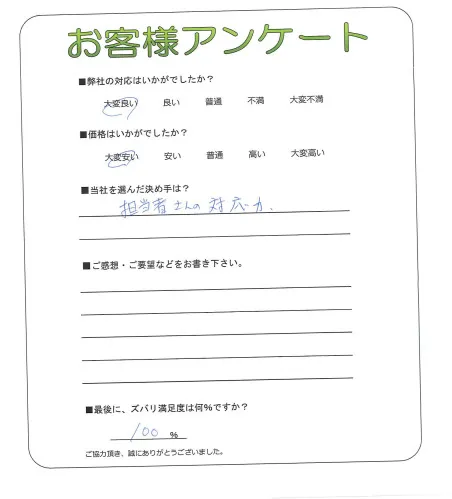 お客様アンケート
■弊社の対応はいかがでしたか？
大変良い 良い 普通 不満 大変不満
■価格はいかがでしたか？
大変安い 安い 普通 高い 大変高い
■当社を選んだ決め手は？
担当者さんの対応力.
■ご感想・ご要望などをお書き下さい。
■最後に、ズバリ満足度は何%ですか？
100 %
ご協力頂き、誠にありがとうございました。